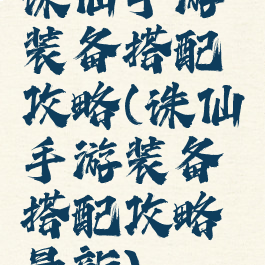 诛仙手游
装备搭配
攻略(诛仙
手游装备
搭配攻略
最新)